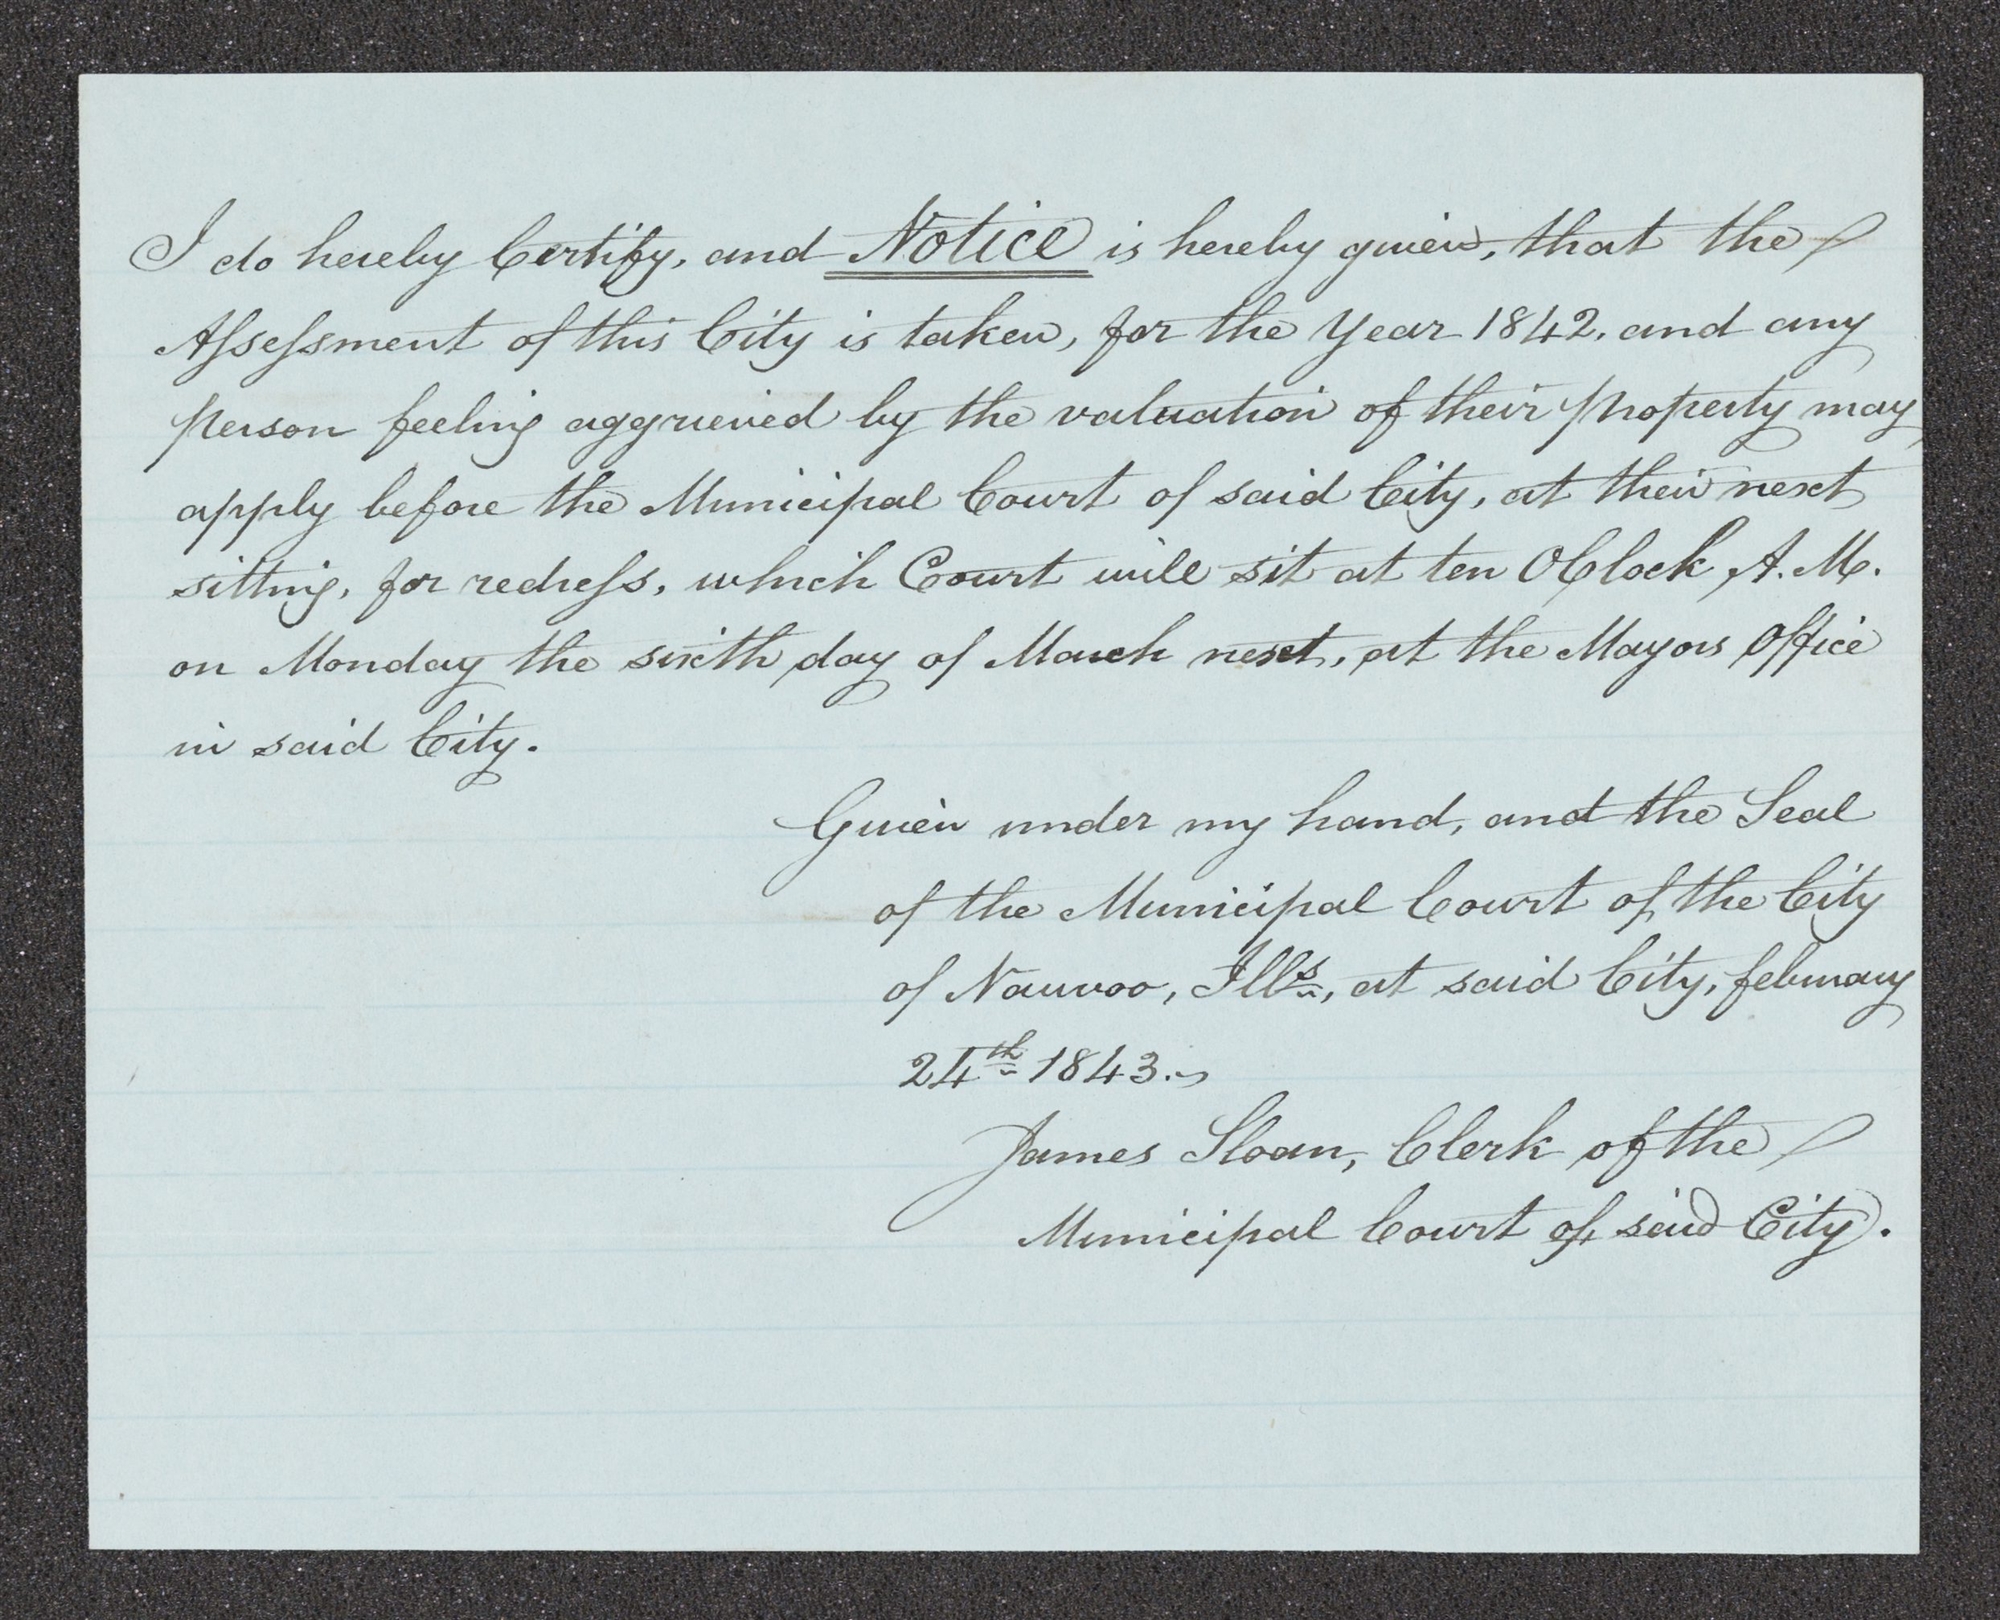 I do hereby Certify, and Notice is hereby given, that the
Assessment of this City is taken, for the Year 1842. and any
person feeling aggrieved by the valuation of their property may
apply before the Municipal Court of said City, at their next
sitting, for redress, which Court will sit at ten OClock A.M.
on Monday the sixth day of March next, at the Mayors Office
in said City.
Given under my hand, and the Seal
of the Municipal Court of the City
of Nauvoo, Ills, at said City, february
24th 1843.
James Sloan, Clerk of the
Municipal Court of said City.